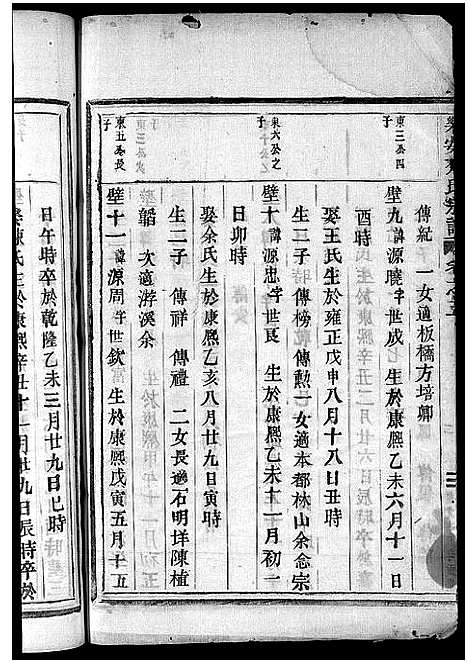 傳紀 一女適板橋方培卿
東三公四子
壁九諱源曉字世成 生於康熙乙未六月十一日
酉時
娶王氏生於雍正戊申八月十八日丑時
生二子 傳榜 傳勳 一女適本都林山余念宗
東六公之子
壁十諱源忠字世長 生於康熙乙未十一月初一
日卯時
娶余氏生於康熙乙亥八月廿九日寅時
生二子 傳祥 傳禮 二女長適石明垟陳植
韜 次適游溪余
東五公長子
壁十一諱源周字世欽 生於康熙戊寅五月十五
日午時卒於乾隆乙未三月廿九日巳時
娶陳氏生於康熙辛丑十一月廿九日辰時卒於